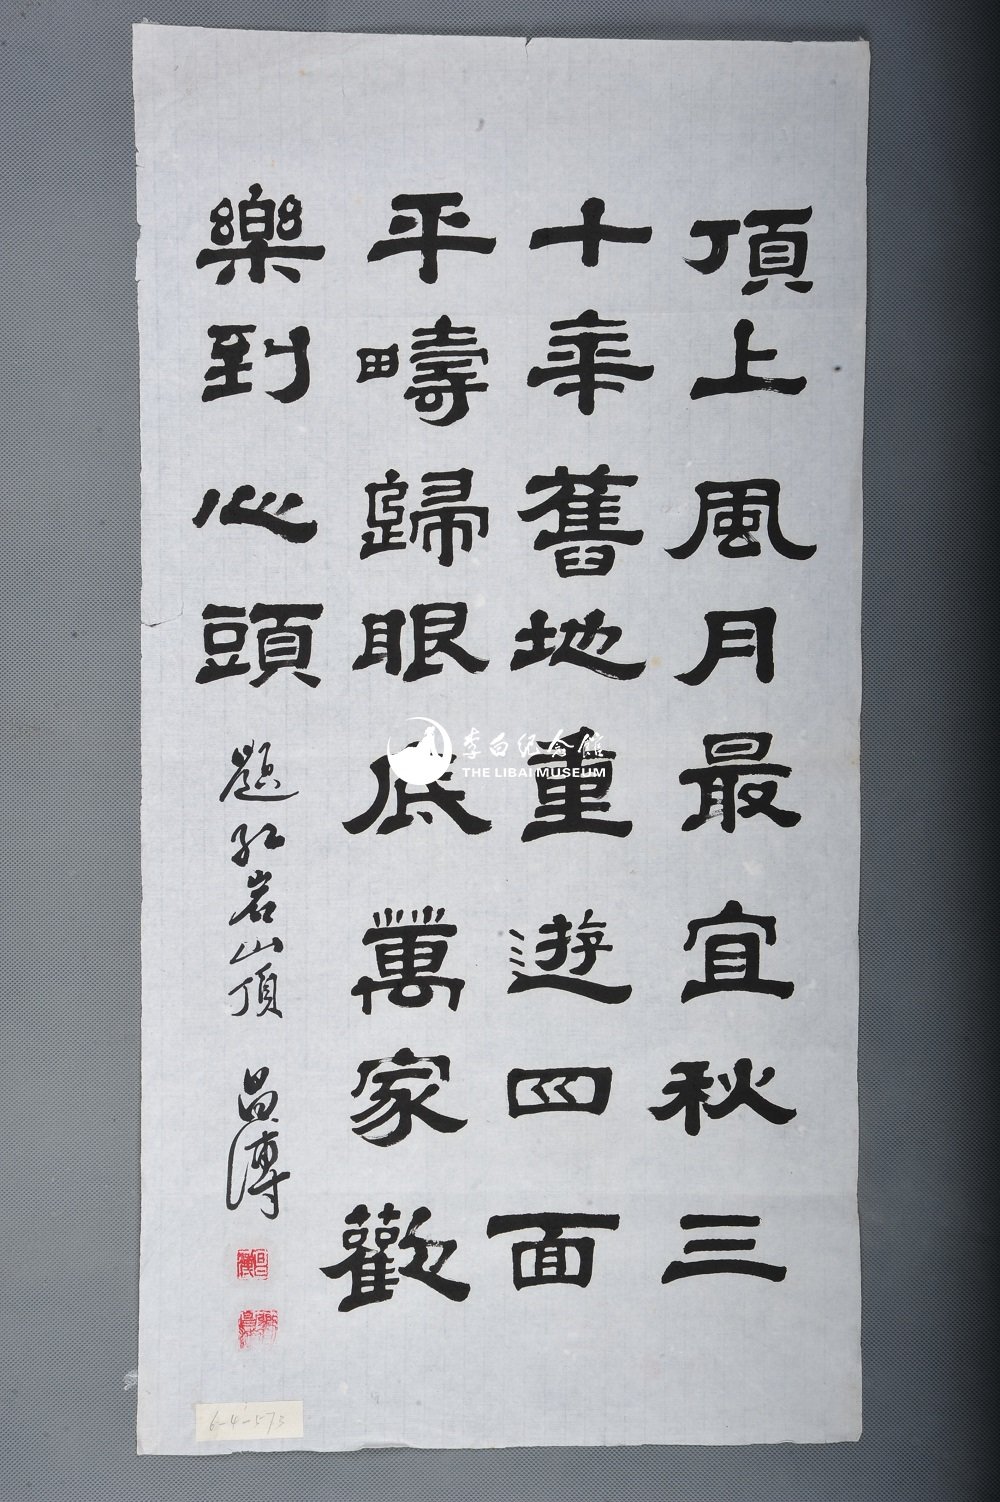 頂上風月最宜秋三
十年舊地重遊四面
平疇歸眼底萬家歡
樂到心頭
題紅岩山頂 昌溥
李白纪念馆
THE LIBAI MUSEUM
6-4-573